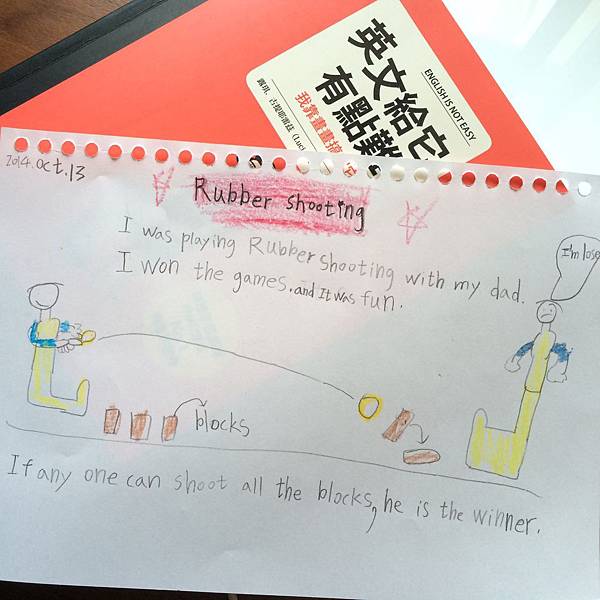 ENGLISH IS NOT EASY
英文給它
有點難
我靠畫畫搞
露琪．古提耶雷茲（Luci
2014.oct.13
Rubber shooting
I was playing Rubber shooting with my dad.
I won the games.and It was fun.
I'm lose
blocks
If any one can shoot all the blocks, he is the winner.